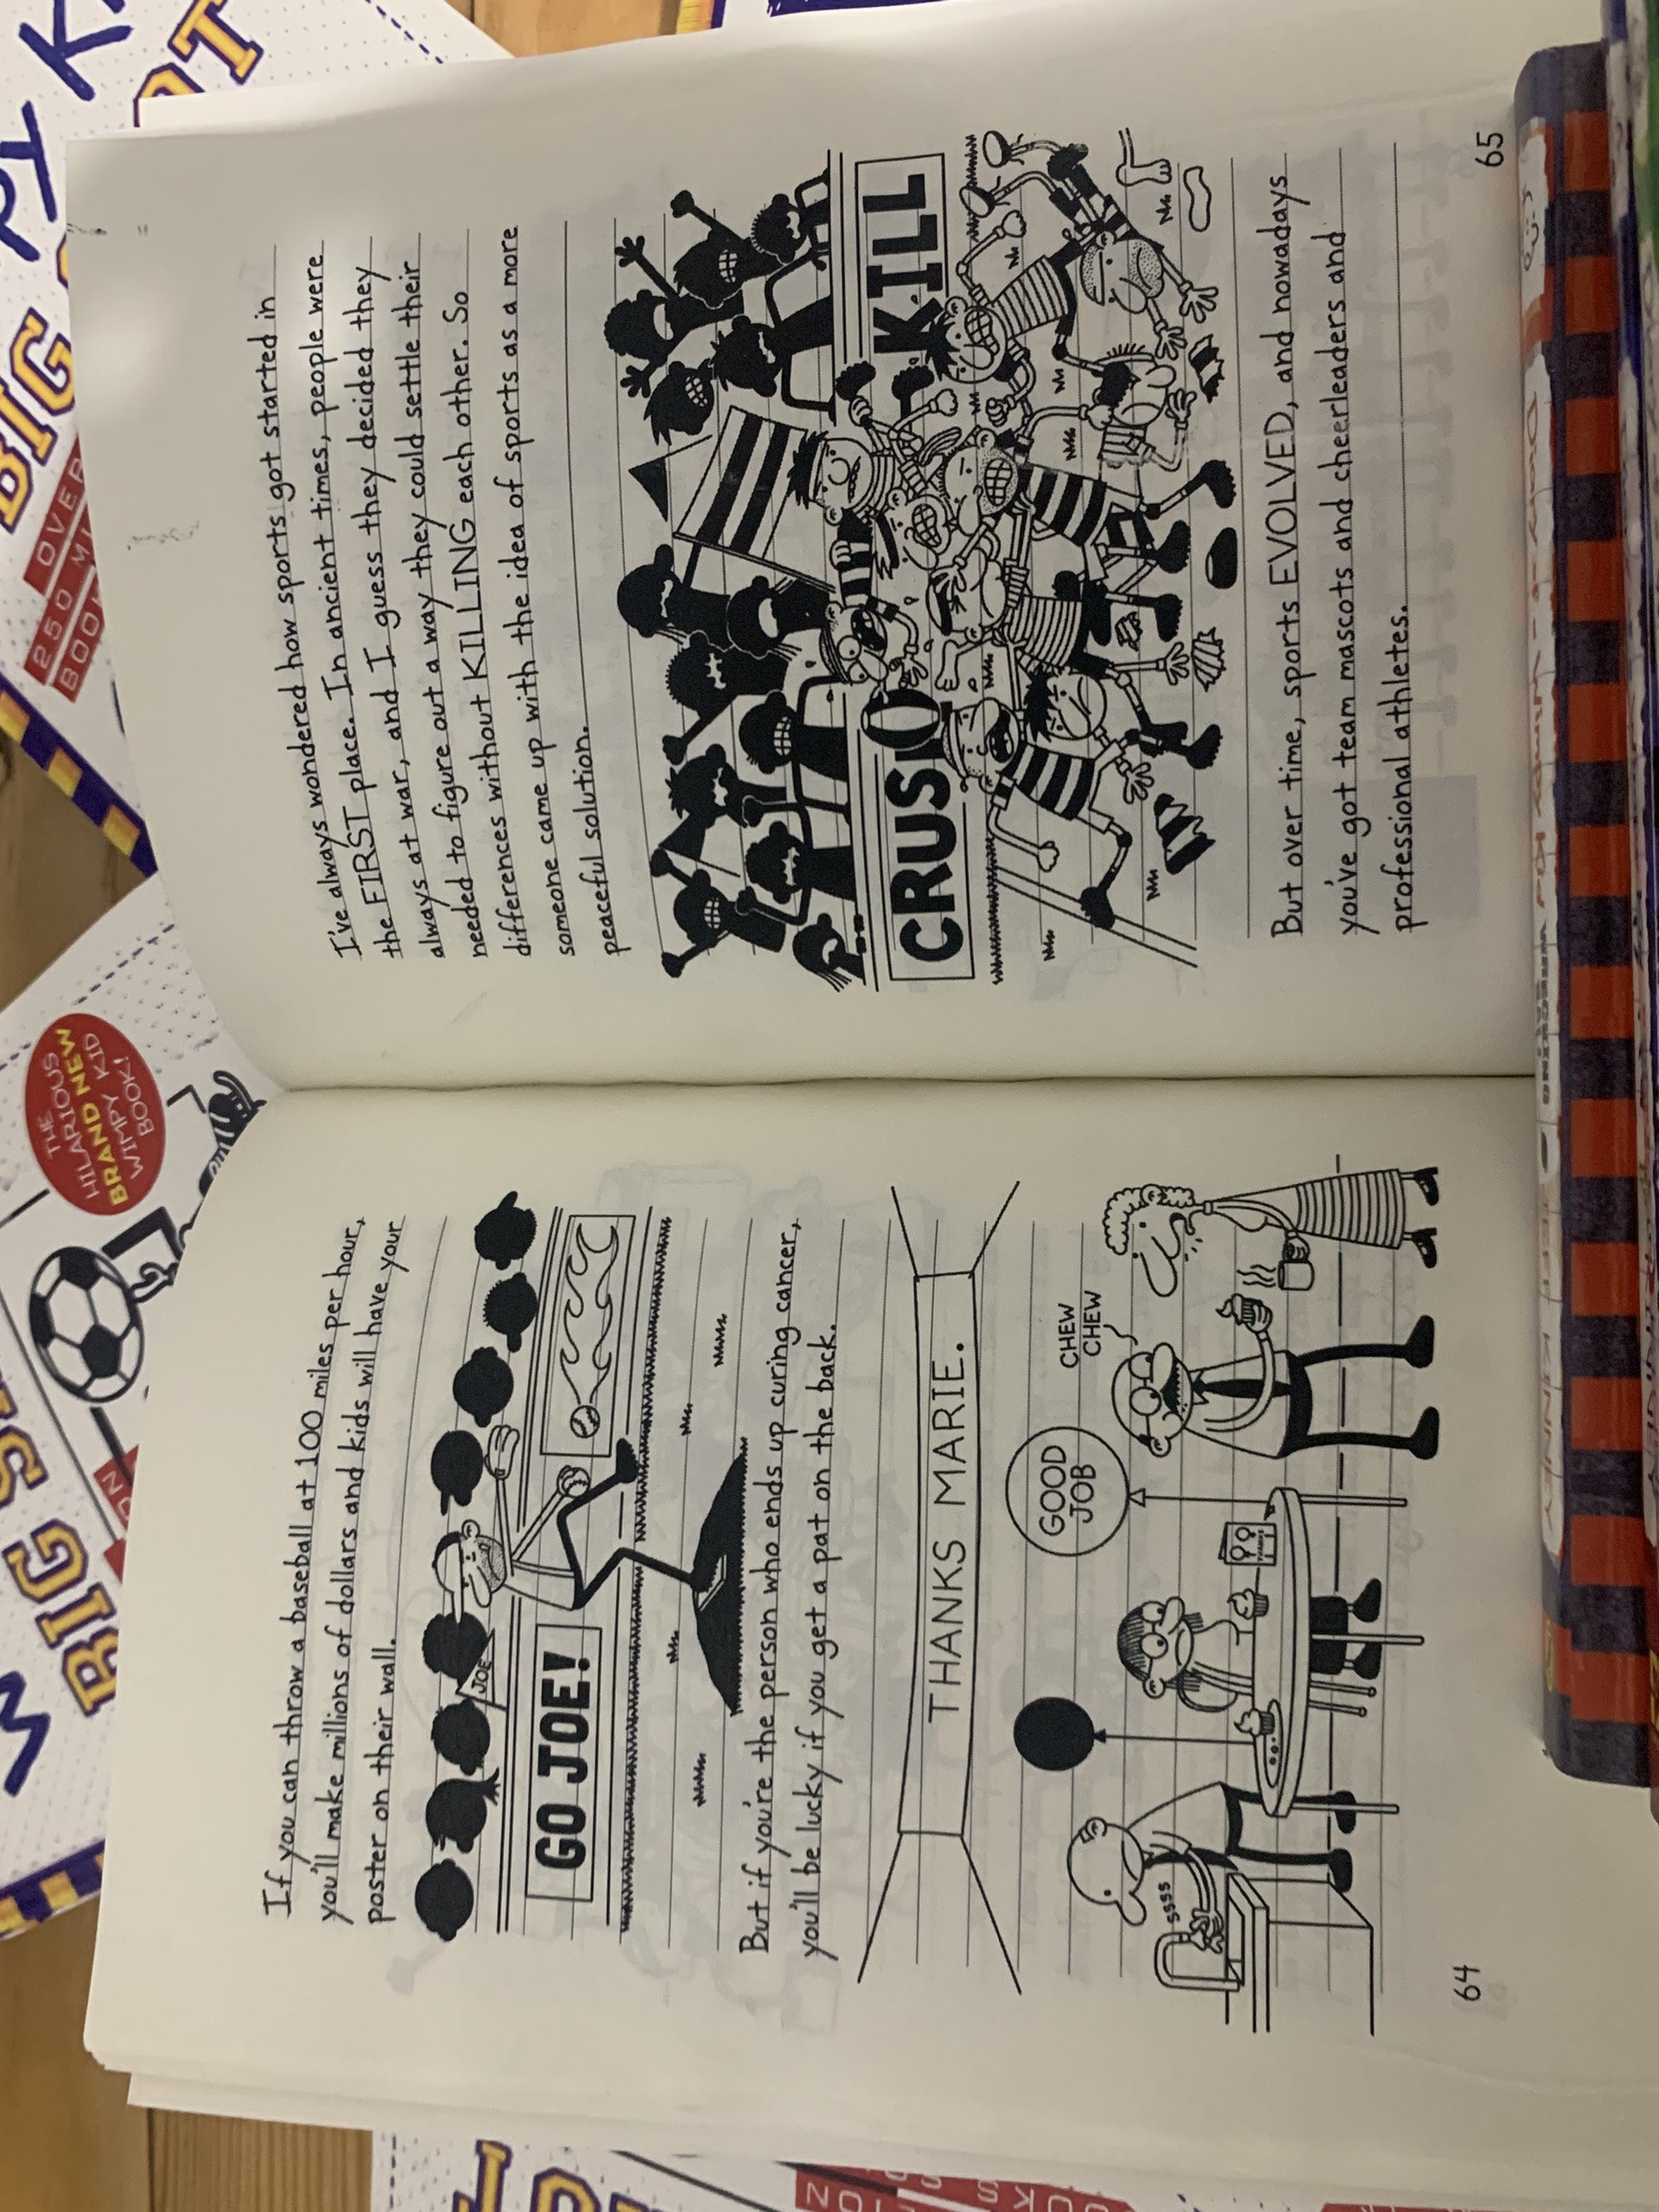 If you can throw a baseball at 100 miles per hour,
you'll make millions of dollars and kids will have your
poster on their wall.
JOE
GO JOE!
But if you're the person who ends up curing cancer,
you'll be lucky if you get a pat on the back.
THANKS MARIE.
GOOD
JOB
CHEW
CHEW
ssss
64
I've always wondered how sports got started in
the FIRST place. In ancient times, people were
always at war, and I guess they decided they
needed to figure out a way they could settle their
differences without KILLING each other. So
someone came up with the idea of sports as a more
peaceful solution.
CRUS
KILL
But over time, sports EVOLVED, and nowadays
you've got team mascots and cheerleaders and
professional athletes.
65
THE
HILARIOUS
BRAND NEW
WIMPY KID
BOOK!
BIG
250
OVER
BIG